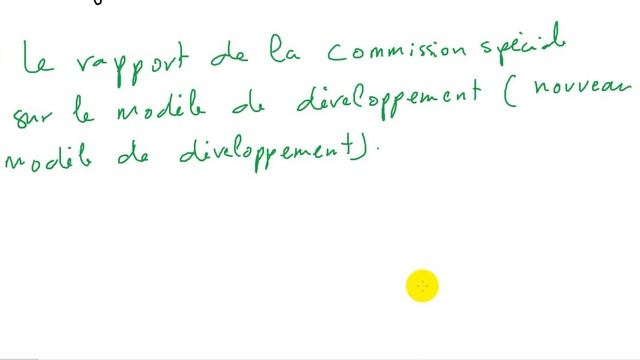 Le rapport de la commission spéciale
sur le modèle de développement ( nouveau
modèle de développement).